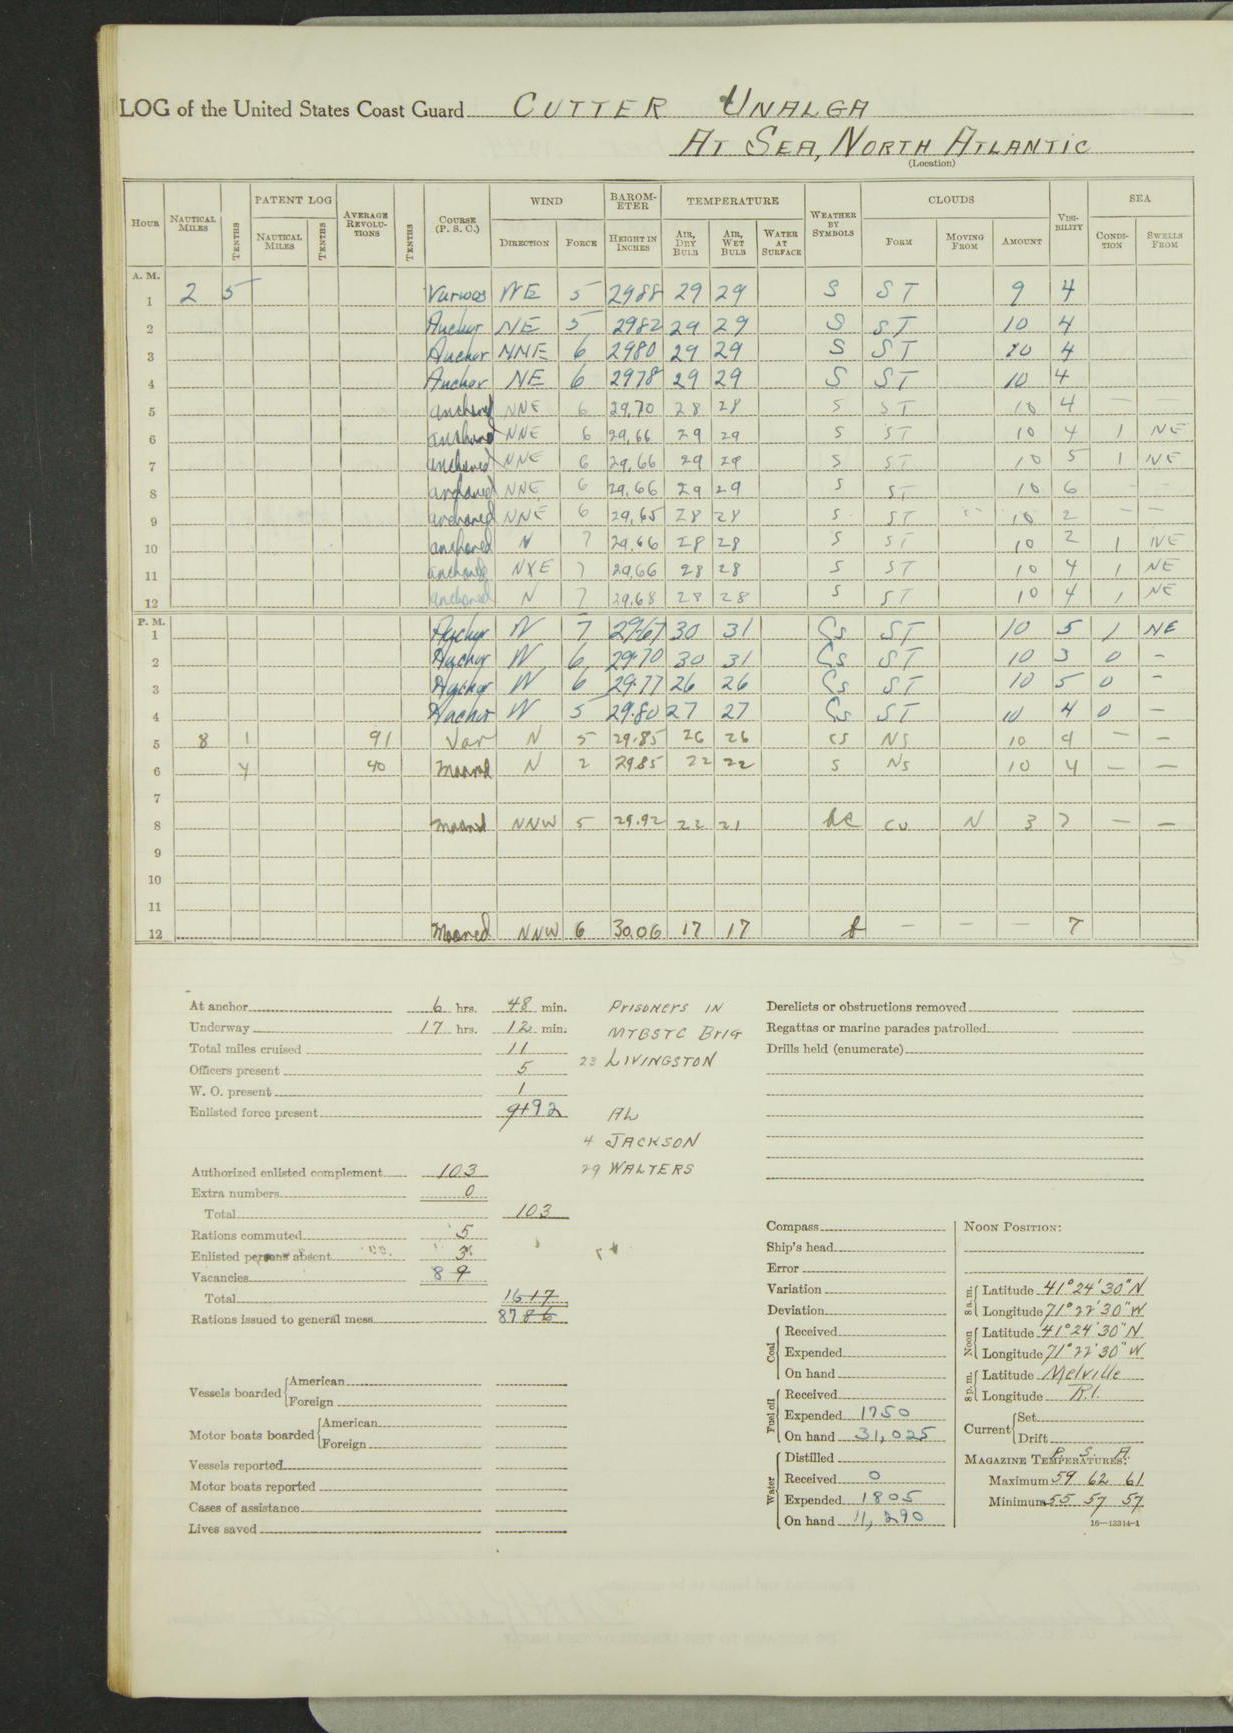 LOG of the United States Coast Guard CUTTER UNALGA
AT SEA, NORTH ATLANTIC
(Location)
HOUR NAUTICAL MILES TENTHS PATENT LOG NAUTICAL MILES TENTHS AVERAGE REVOLUTIONS TENTHS COURSE (P. S. C.) WIND DIRECTION FORCE BAROMETER HEIGHT IN INCHES TEMPERATURE AIR, DRY BULB AIR, WET BULB WATER AT SURFACE WEATHER BY SYMBOLS CLOUDS FORM MOVING FROM AMOUNT VISIBILITY SEA CONDITION SWELLS FROM
A. M.
1 2 5 Various NE 5 2988 29 29 S ST 9 4
2 Anchor NE 5 2982 29 29 S ST 10 4
3 Anchor NNE 6 2980 29 29 S ST 10 4
4 Anchor NE 6 2978 29 29 S ST 10 4
5 anchored NNE 6 29.70 28 28 S ST 10 4 — —
6 anchored NNE 6 29.66 29 29 S ST 10 4 1 NE
7 anchored NNE 6 29.66 29 29 S ST 10 5 1 NE
8 anchored NNE 6 29.66 29 29 S ST 10 6 — —
9 anchored NNE 6 29.65 28 28 S ST — 10 2 — —
10 anchored N 7 29.66 28 28 S ST 10 2 1 NE
11 anchored NXE 7 29.66 28 28 S ST 10 4 1 NE
12 anchored N 7 29.68 28 28 S ST 10 4 1 NE
P. M.
1 Anchor N 7 29.67 30 31 Cs ST 10 5 1 NE
2 Anchor N 6 29.70 30 31 Cs ST 10 3 0 —
3 Anchor N 6 29.77 26 26 Cs ST 10 5 0 —
4 Anchor N 5 29.80 27 27 Cs ST 10 4 0 —
5 8 1 91 Var N 5 29.85 26 26 cs NS 10 4 — —
6 4 40 Moored N 2 29.85 22 22 S NS 10 4 — —
7
8 Moored NNW 5 29.92 22 21 bc CU N 3 7 — —
9
10
11
12 Moored NNW 6 30.06 17 17 b — — — 7
At anchor 6 hrs. 48 min.
Underway 17 hrs. 12 min.
Total miles cruised 11
Officers present 5
W. O. present 1
Enlisted force present 91 92
Authorized enlisted complement 103
Extra numbers 0
Total 103
Rations commuted 5
Enlisted persons absent 3
Vacancies 8 9
Total 16 17
Rations issued to general mess 87 86
Vessels boarded American
Foreign
Motor boats boarded American
Foreign
Vessels reported
Motor boats reported
Cases of assistance
Lives saved
PRISONERS IN
MTBSTC BRIG
23 LIVINGSTON
AL
4 JACKSON
29 WALTERS
Derelicts or obstructions removed
Regattas or marine parades patrolled
Drills held (enumerate)
Compass
Ship's head
Error
Variation
Deviation
Coal Received
Expended
On hand
Fuel oil Received
Expended 1750
On hand 31,025
Water Distilled
Received 0
Expended 1805
On hand 11,290
NOON POSITION:
8 a. m. Latitude 41°24'30"N
Longitude 71°22'30"W
Noon Latitude 41°24'30"N
Longitude 71°22'30"W
8 p. m. Latitude Melville
Longitude R.I.
Current Set
Drift
P. S. A.
MAGAZINE TEMPERATURES:
Maximum 59 62 61
Minimum 55 57 57
16—13314-1